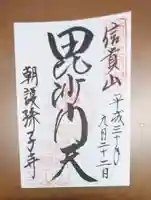 信貴山
平成三十年
九月二十二日
毘沙门天
朝護孫子寺